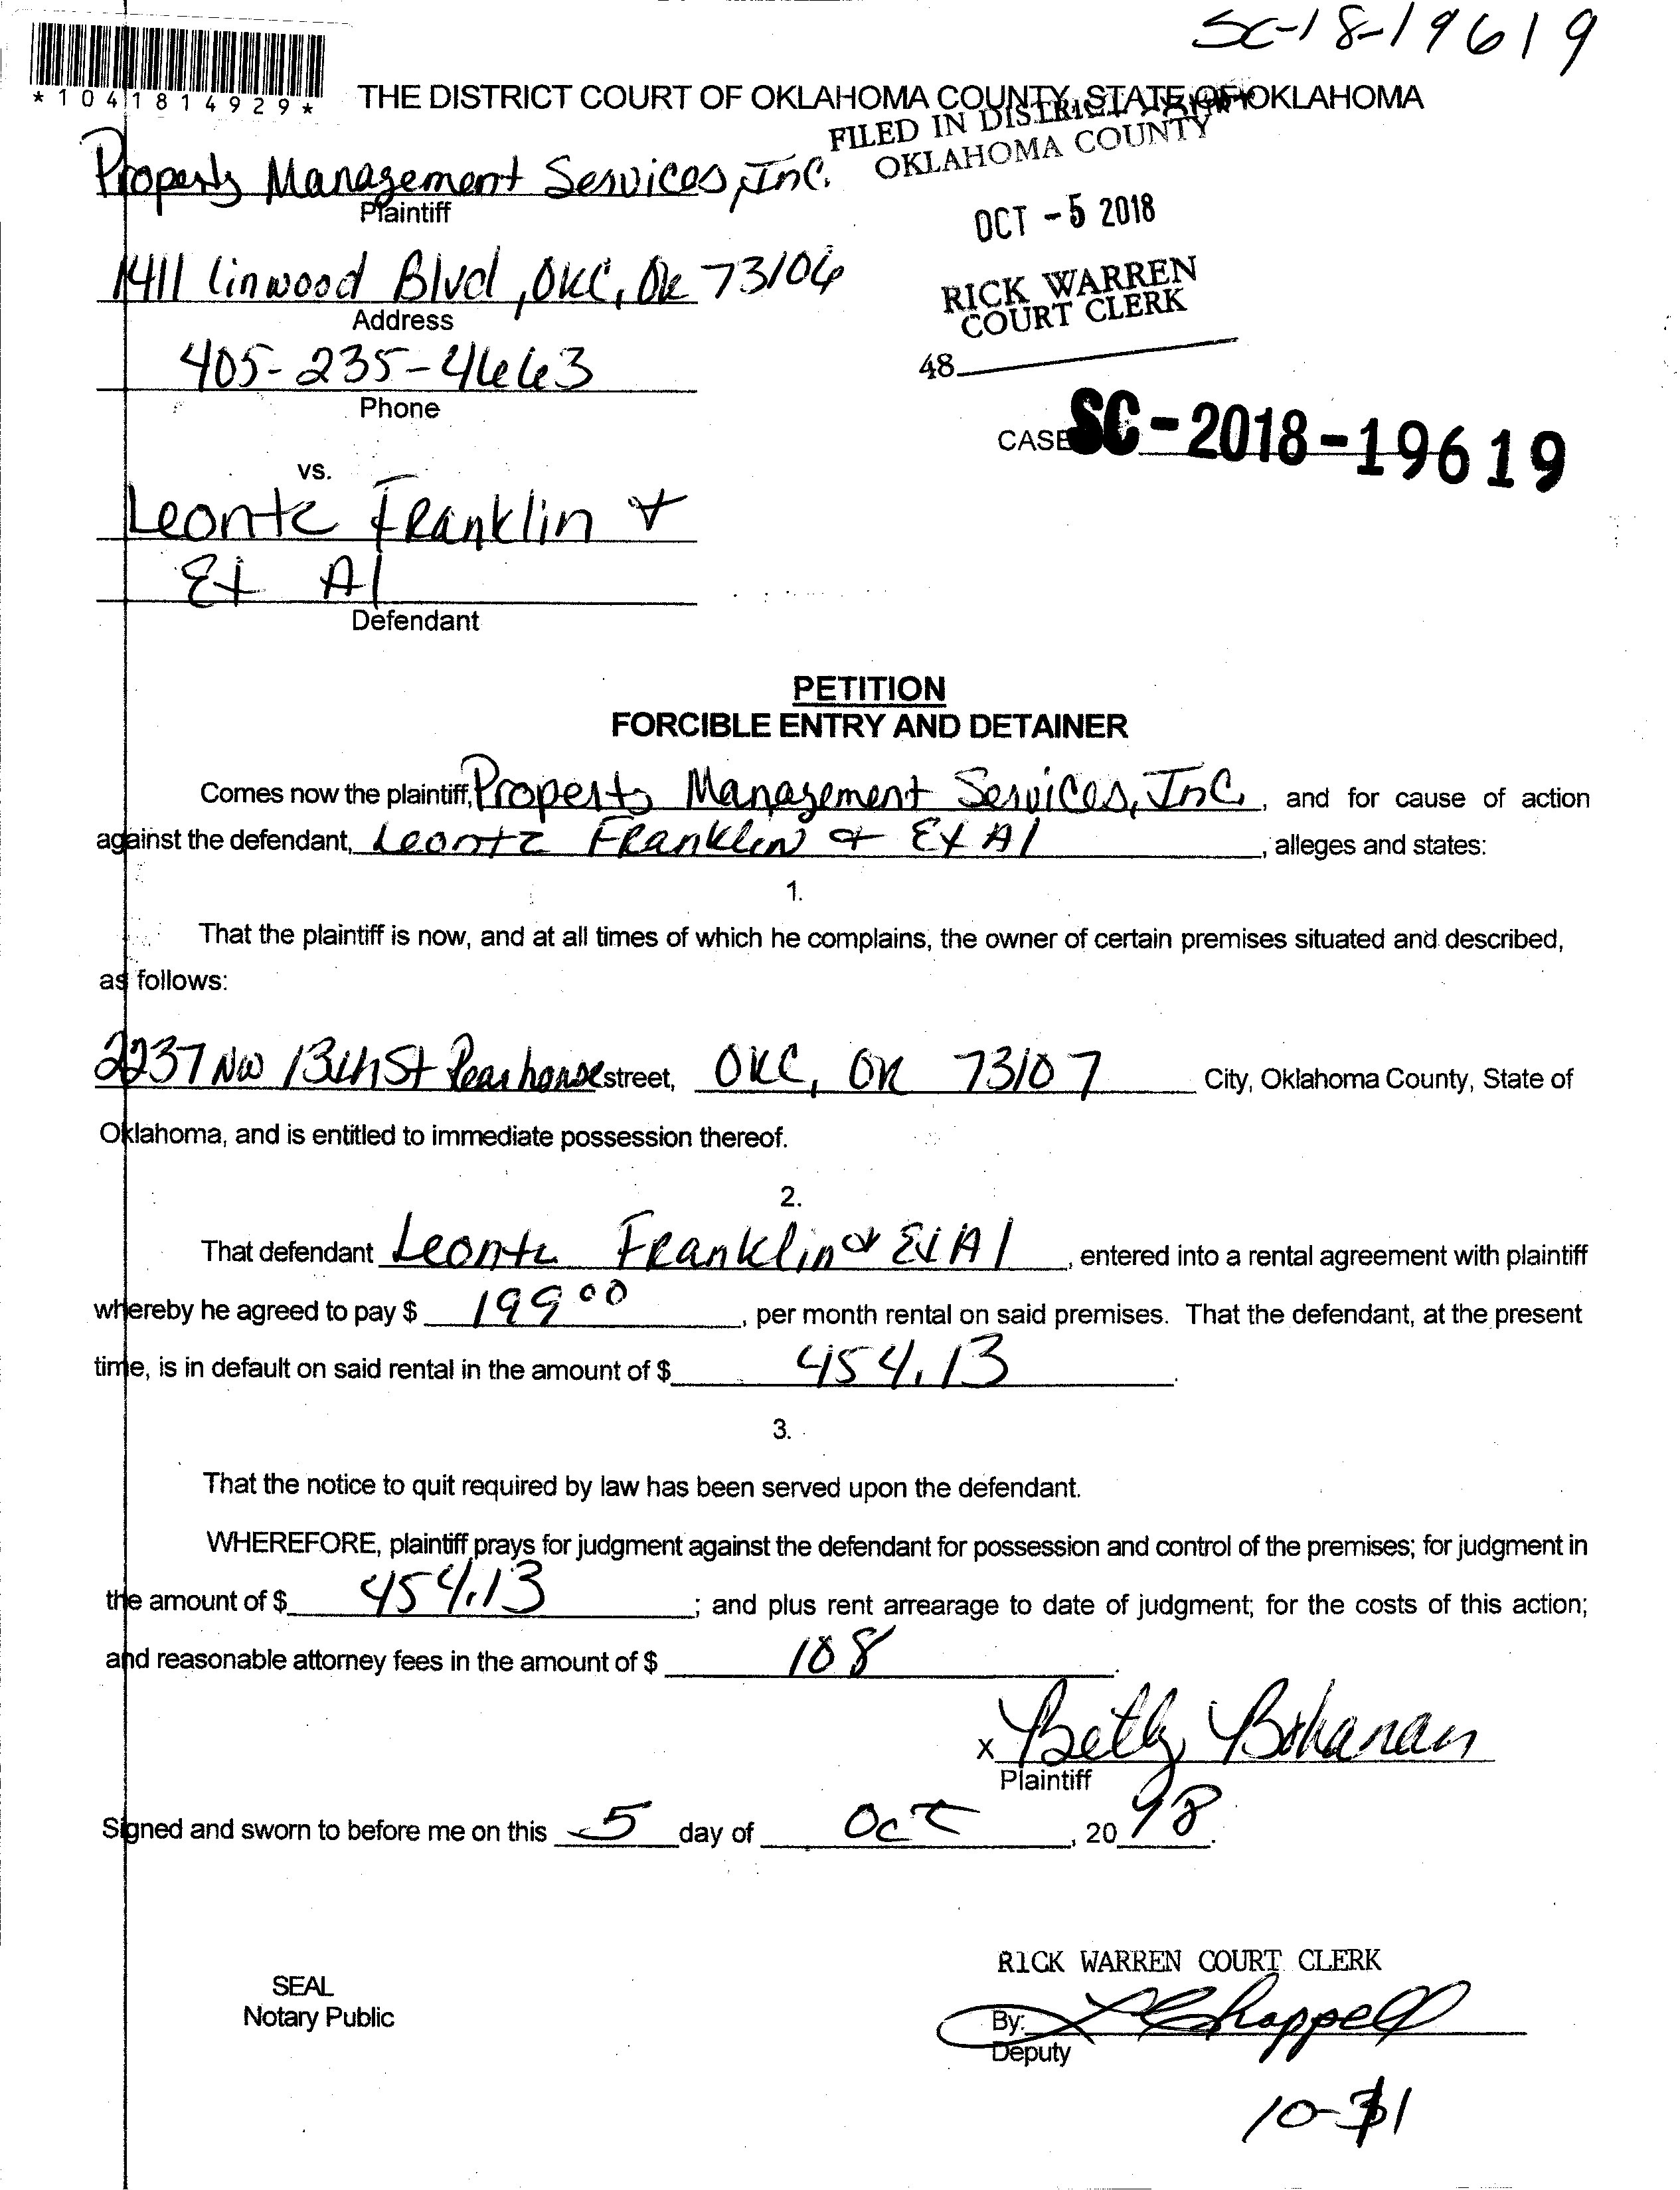 SC-18-19619
*1041814929*
THE DISTRICT COURT OF OKLAHOMA COUNTY, STATE OF OKLAHOMA
FILED IN DISTRICT
OKLAHOMA COUNTY
Property Management Services, Inc.
Plaintiff
OCT -5 2018
1411 linwood Blvd, OKC, Ok 73106
Address
RICK WARREN
COURT CLERK
405-235-4663
Phone
48
CASE SC-2018-19619
vs.
Leonte Franklin &
Et Al
Defendant
PETITION
FORCIBLE ENTRY AND DETAINER
Comes now the plaintiff, Property Management Services, Inc. , and for cause of action
against the defendant, Leonte Franklin & Et Al , alleges and states:
1.
That the plaintiff is now, and at all times of which he complains, the owner of certain premises situated and described,
as follows:
2237 NW 13th St Rearhouse street, OKC, OK 73107 City, Oklahoma County, State of
Oklahoma, and is entitled to immediate possession thereof.
2.
That defendant Leonte Franklin & Et Al , entered into a rental agreement with plaintiff
whereby he agreed to pay $ 199 00 , per month rental on said premises. That the defendant, at the present
time, is in default on said rental in the amount of $ 454.13 .
3.
That the notice to quit required by law has been served upon the defendant.
WHEREFORE, plaintiff prays for judgment against the defendant for possession and control of the premises; for judgment in
the amount of $ 454.13 ; and plus rent arrearage to date of judgment; for the costs of this action;
and reasonable attorney fees in the amount of $ 108 .
x Betty Bohanan
Plaintiff
Signed and sworn to before me on this 5 day of Oct , 20 18 .
RICK WARREN COURT CLERK
SEAL
Notary Public
By: Chappell
Deputy
10-31